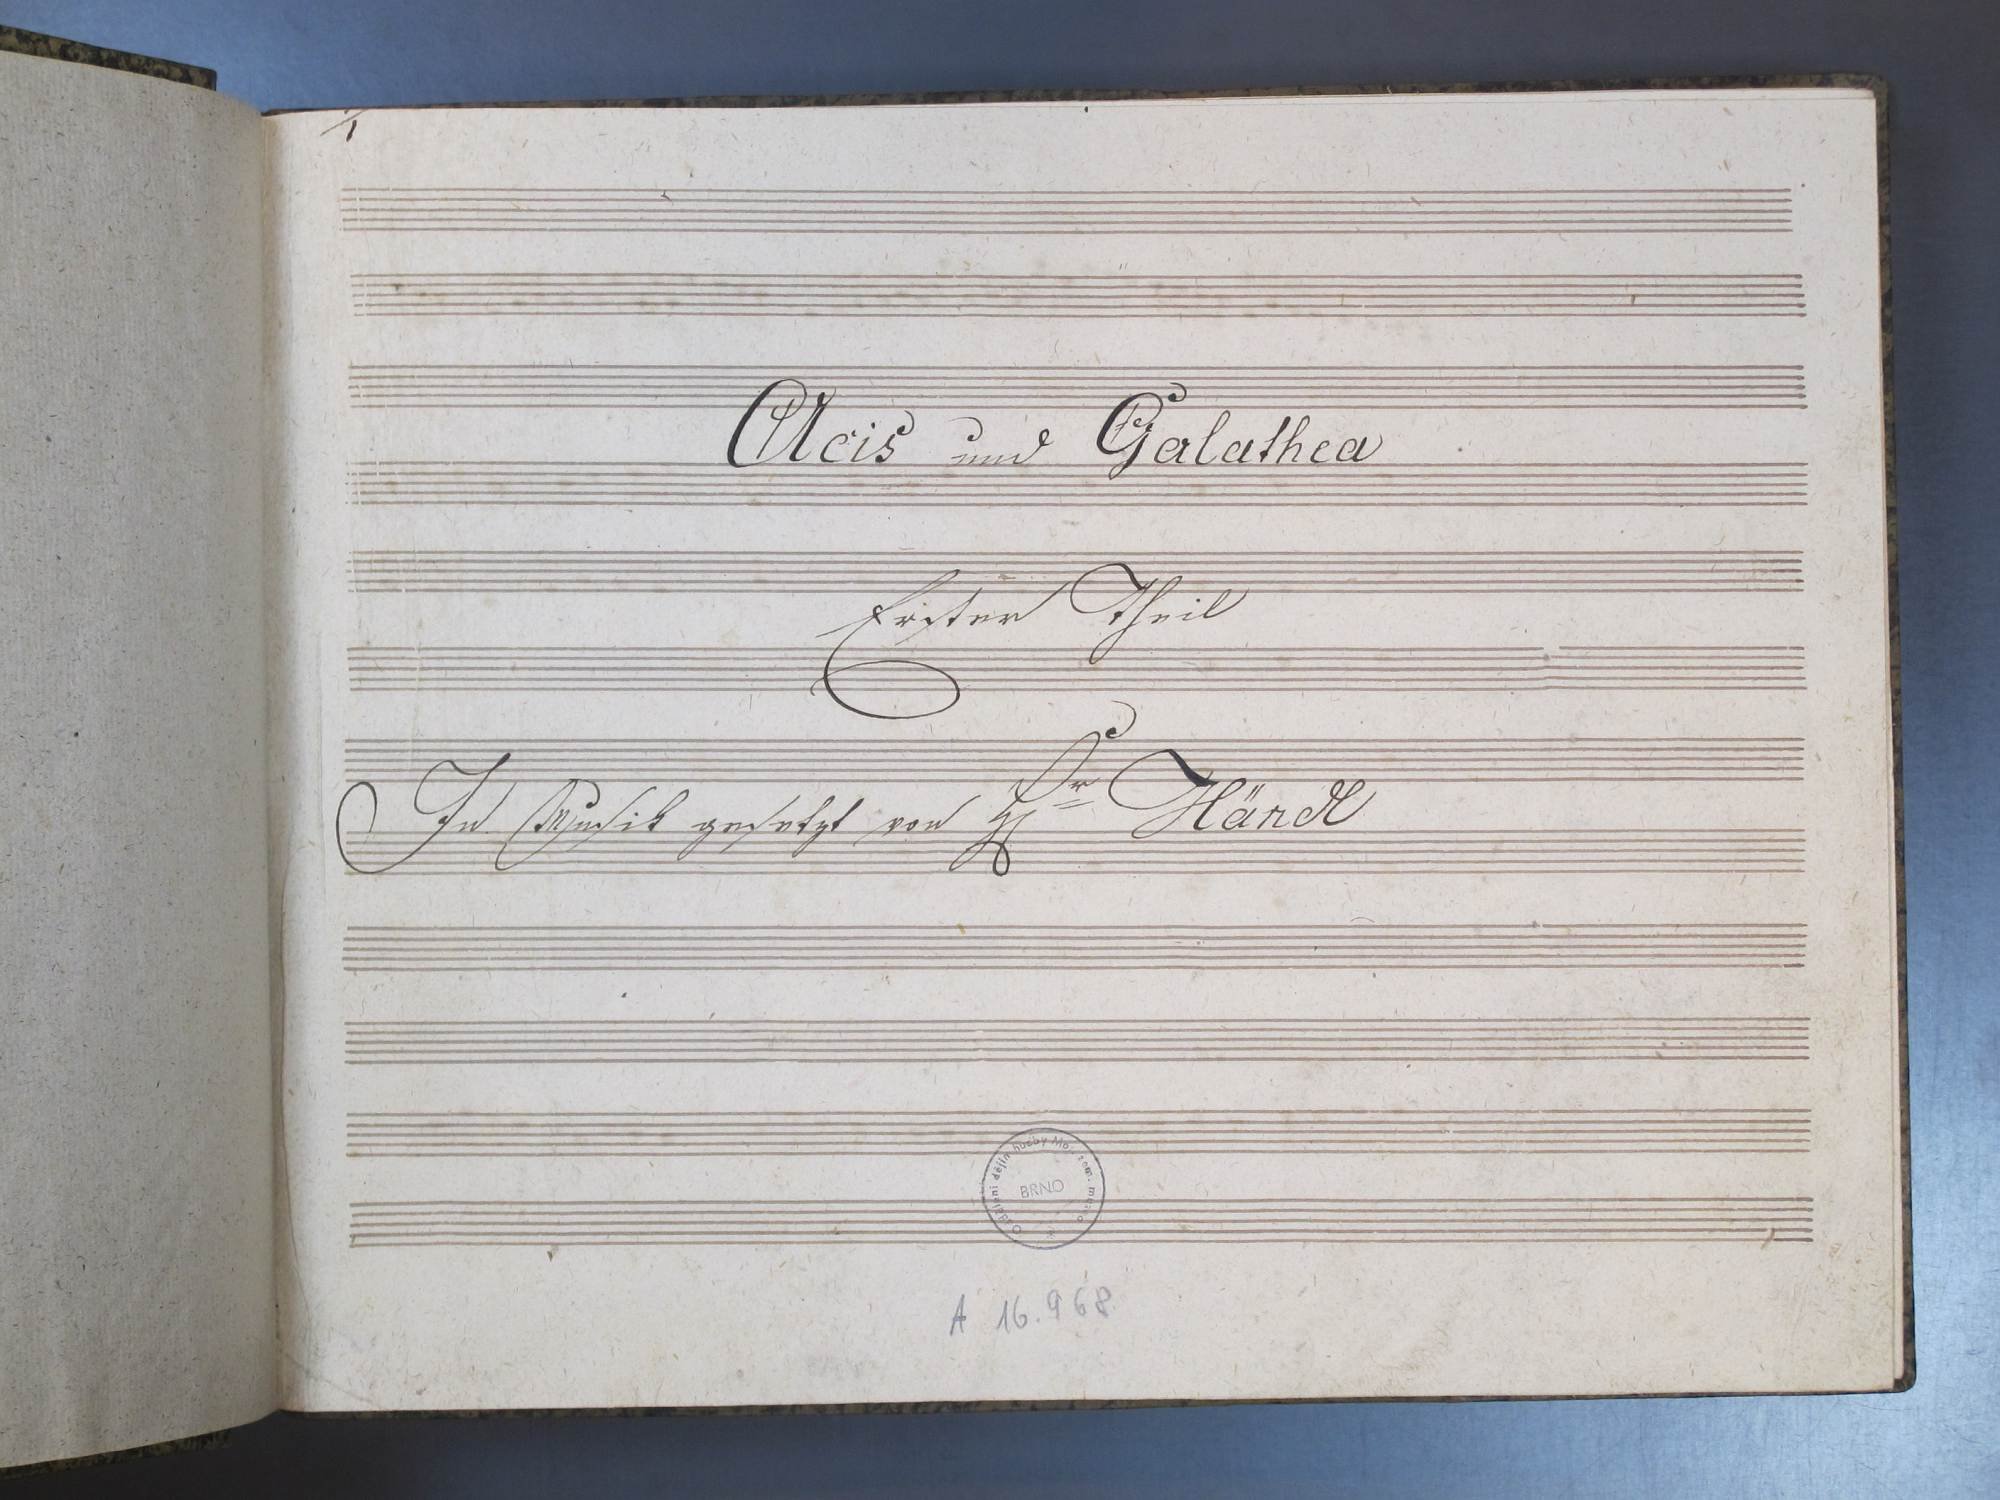 1
Acis und Galathea
Erster Theil
In Musik gesetzt von Hr Händl
Oddělení dějin hudby Mor. zem. musea
BRNO
A 16.968